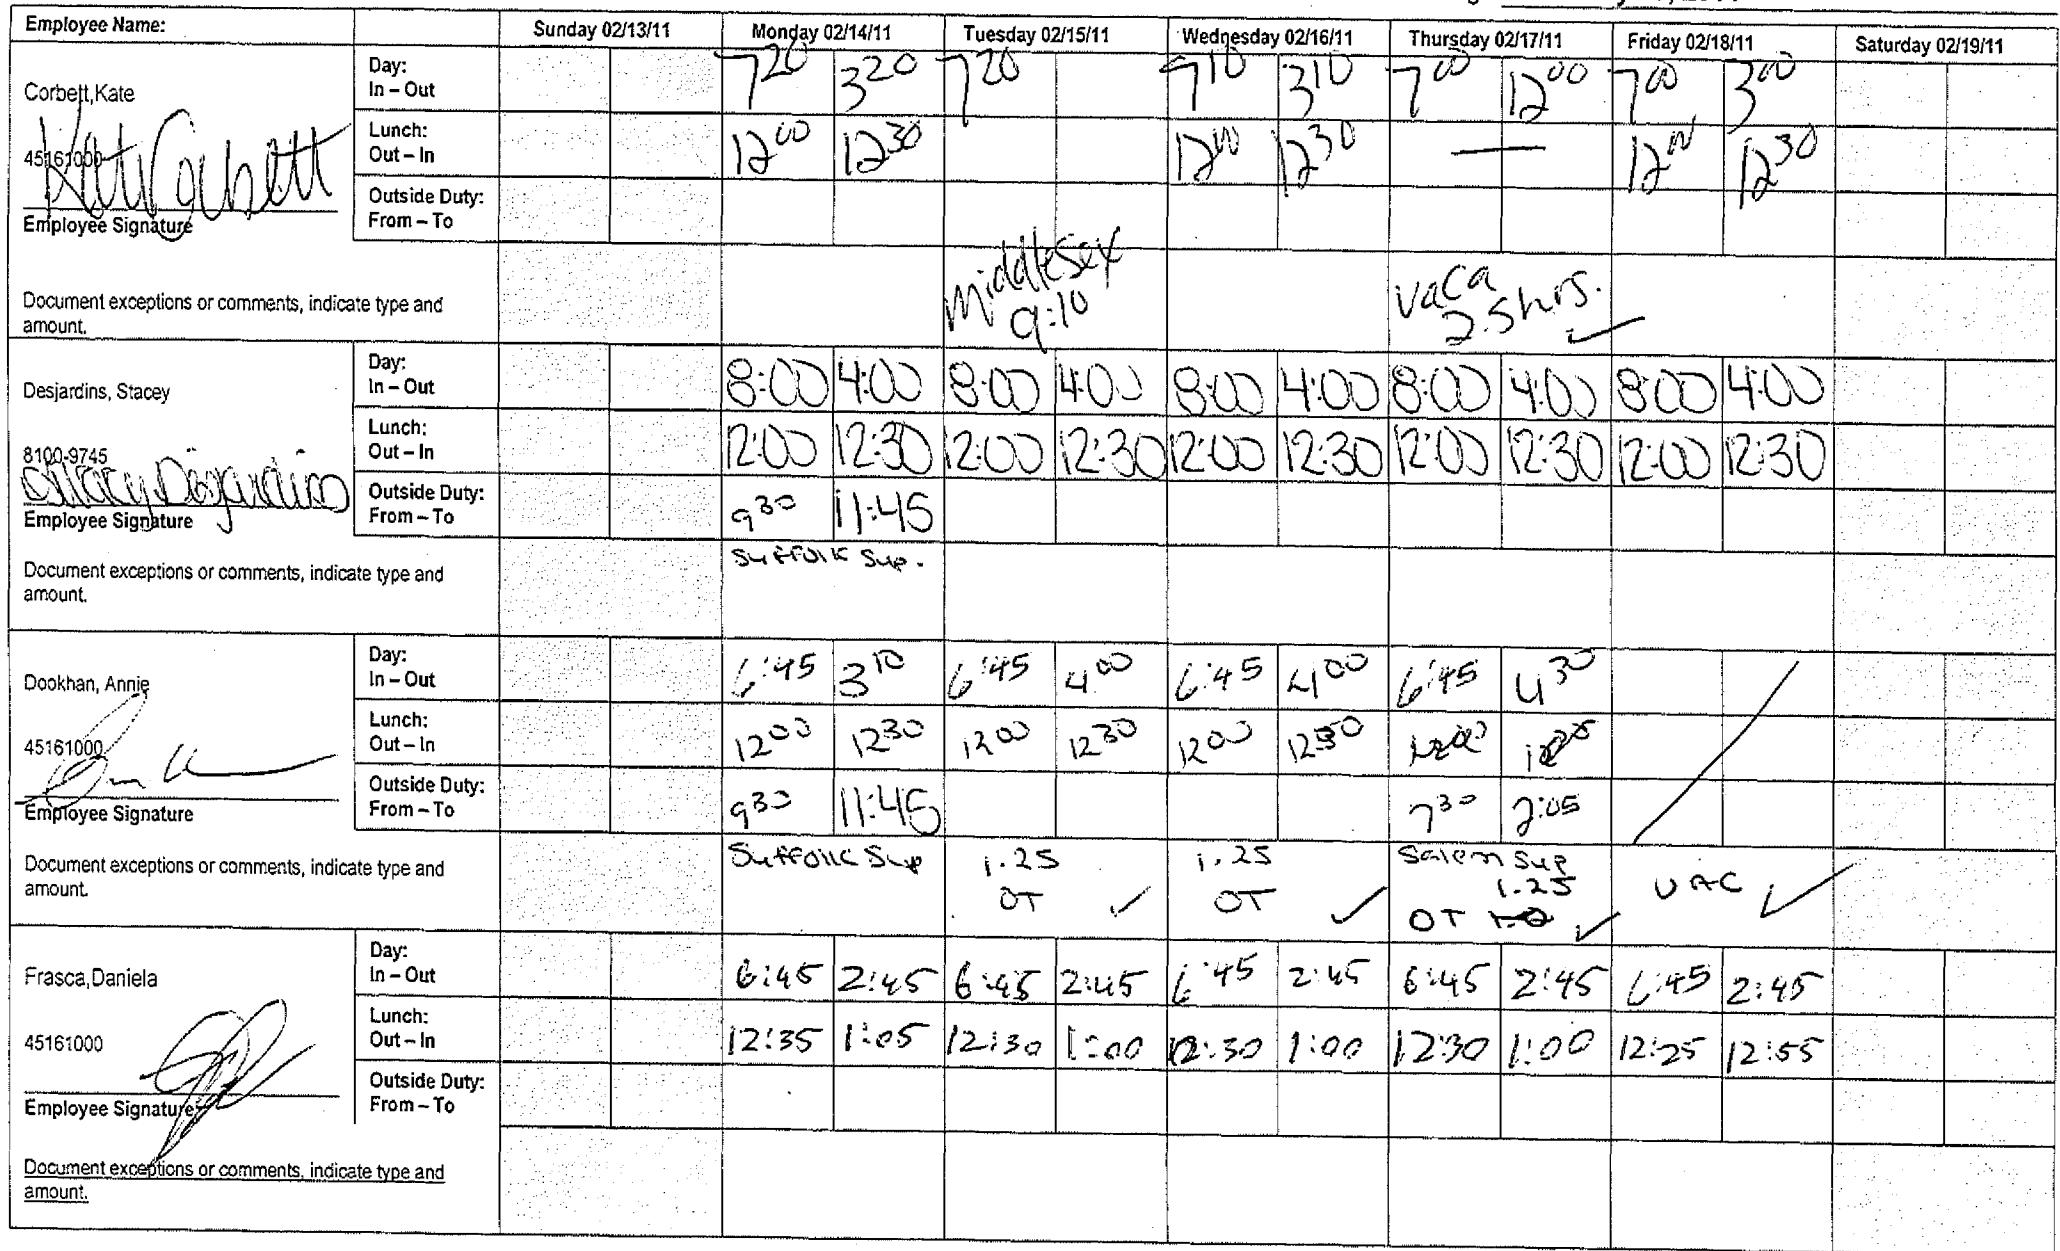 Employee Name: Sunday 02/13/11 Monday 02/14/11 Tuesday 02/15/11 Wednesday 02/16/11 Thursday 02/17/11 Friday 02/18/11 Saturday 02/19/11
Corbett,Kate
45161000
Kate Corbett
Employee Signature
Day: In – Out 7 20 3 20 7 20 9 10 3 10 7 00 12 00 7 00 3 00
Lunch: Out – In 12 00 12 30 12 00 12 30 — 12 00 12 30
Outside Duty: From – To
Document exceptions or comments, indicate type and amount. Middlesex 9:10 vaca 2.5 hrs. ✓
Desjardins, Stacey
8100-9745
Stacey Desjardins
Employee Signature
Day: In – Out 8:00 4:00 8:00 4:00 8:00 4:00 8:00 4:00 8:00 4:00
Lunch: Out – In 12:00 12:30 12:00 12:30 12:00 12:30 12:00 12:30 12:00 12:30
Outside Duty: From – To 9 30 11:45
Document exceptions or comments, indicate type and amount. Suffolk Sup.
Dookhan, Annie
45161000
Employee Signature
Day: In – Out 6:45 3 10 6:45 4 00 6:45 4 00 6:45 4 30
Lunch: Out – In 12 00 12 30 12 00 12 30 12 00 12 30
Outside Duty: From – To 9 30 11:45 7 30 2:05
Document exceptions or comments, indicate type and amount. Suffolk Sup 1.25 OT ✓ 1.25 OT ✓ Salem Sup 1.25 OT ✓ VAC ✓
Frasca,Daniela
45161000
Employee Signature
Day: In – Out 6:45 2:45 6:45 2:45 6:45 2:45 6:45 2:45 6:45 2:45
Lunch: Out – In 12:35 1:05 12:30 1:00 12:30 1:00 12:30 1:00 12:25 12:55
Outside Duty: From – To
Document exceptions or comments, indicate type and amount.